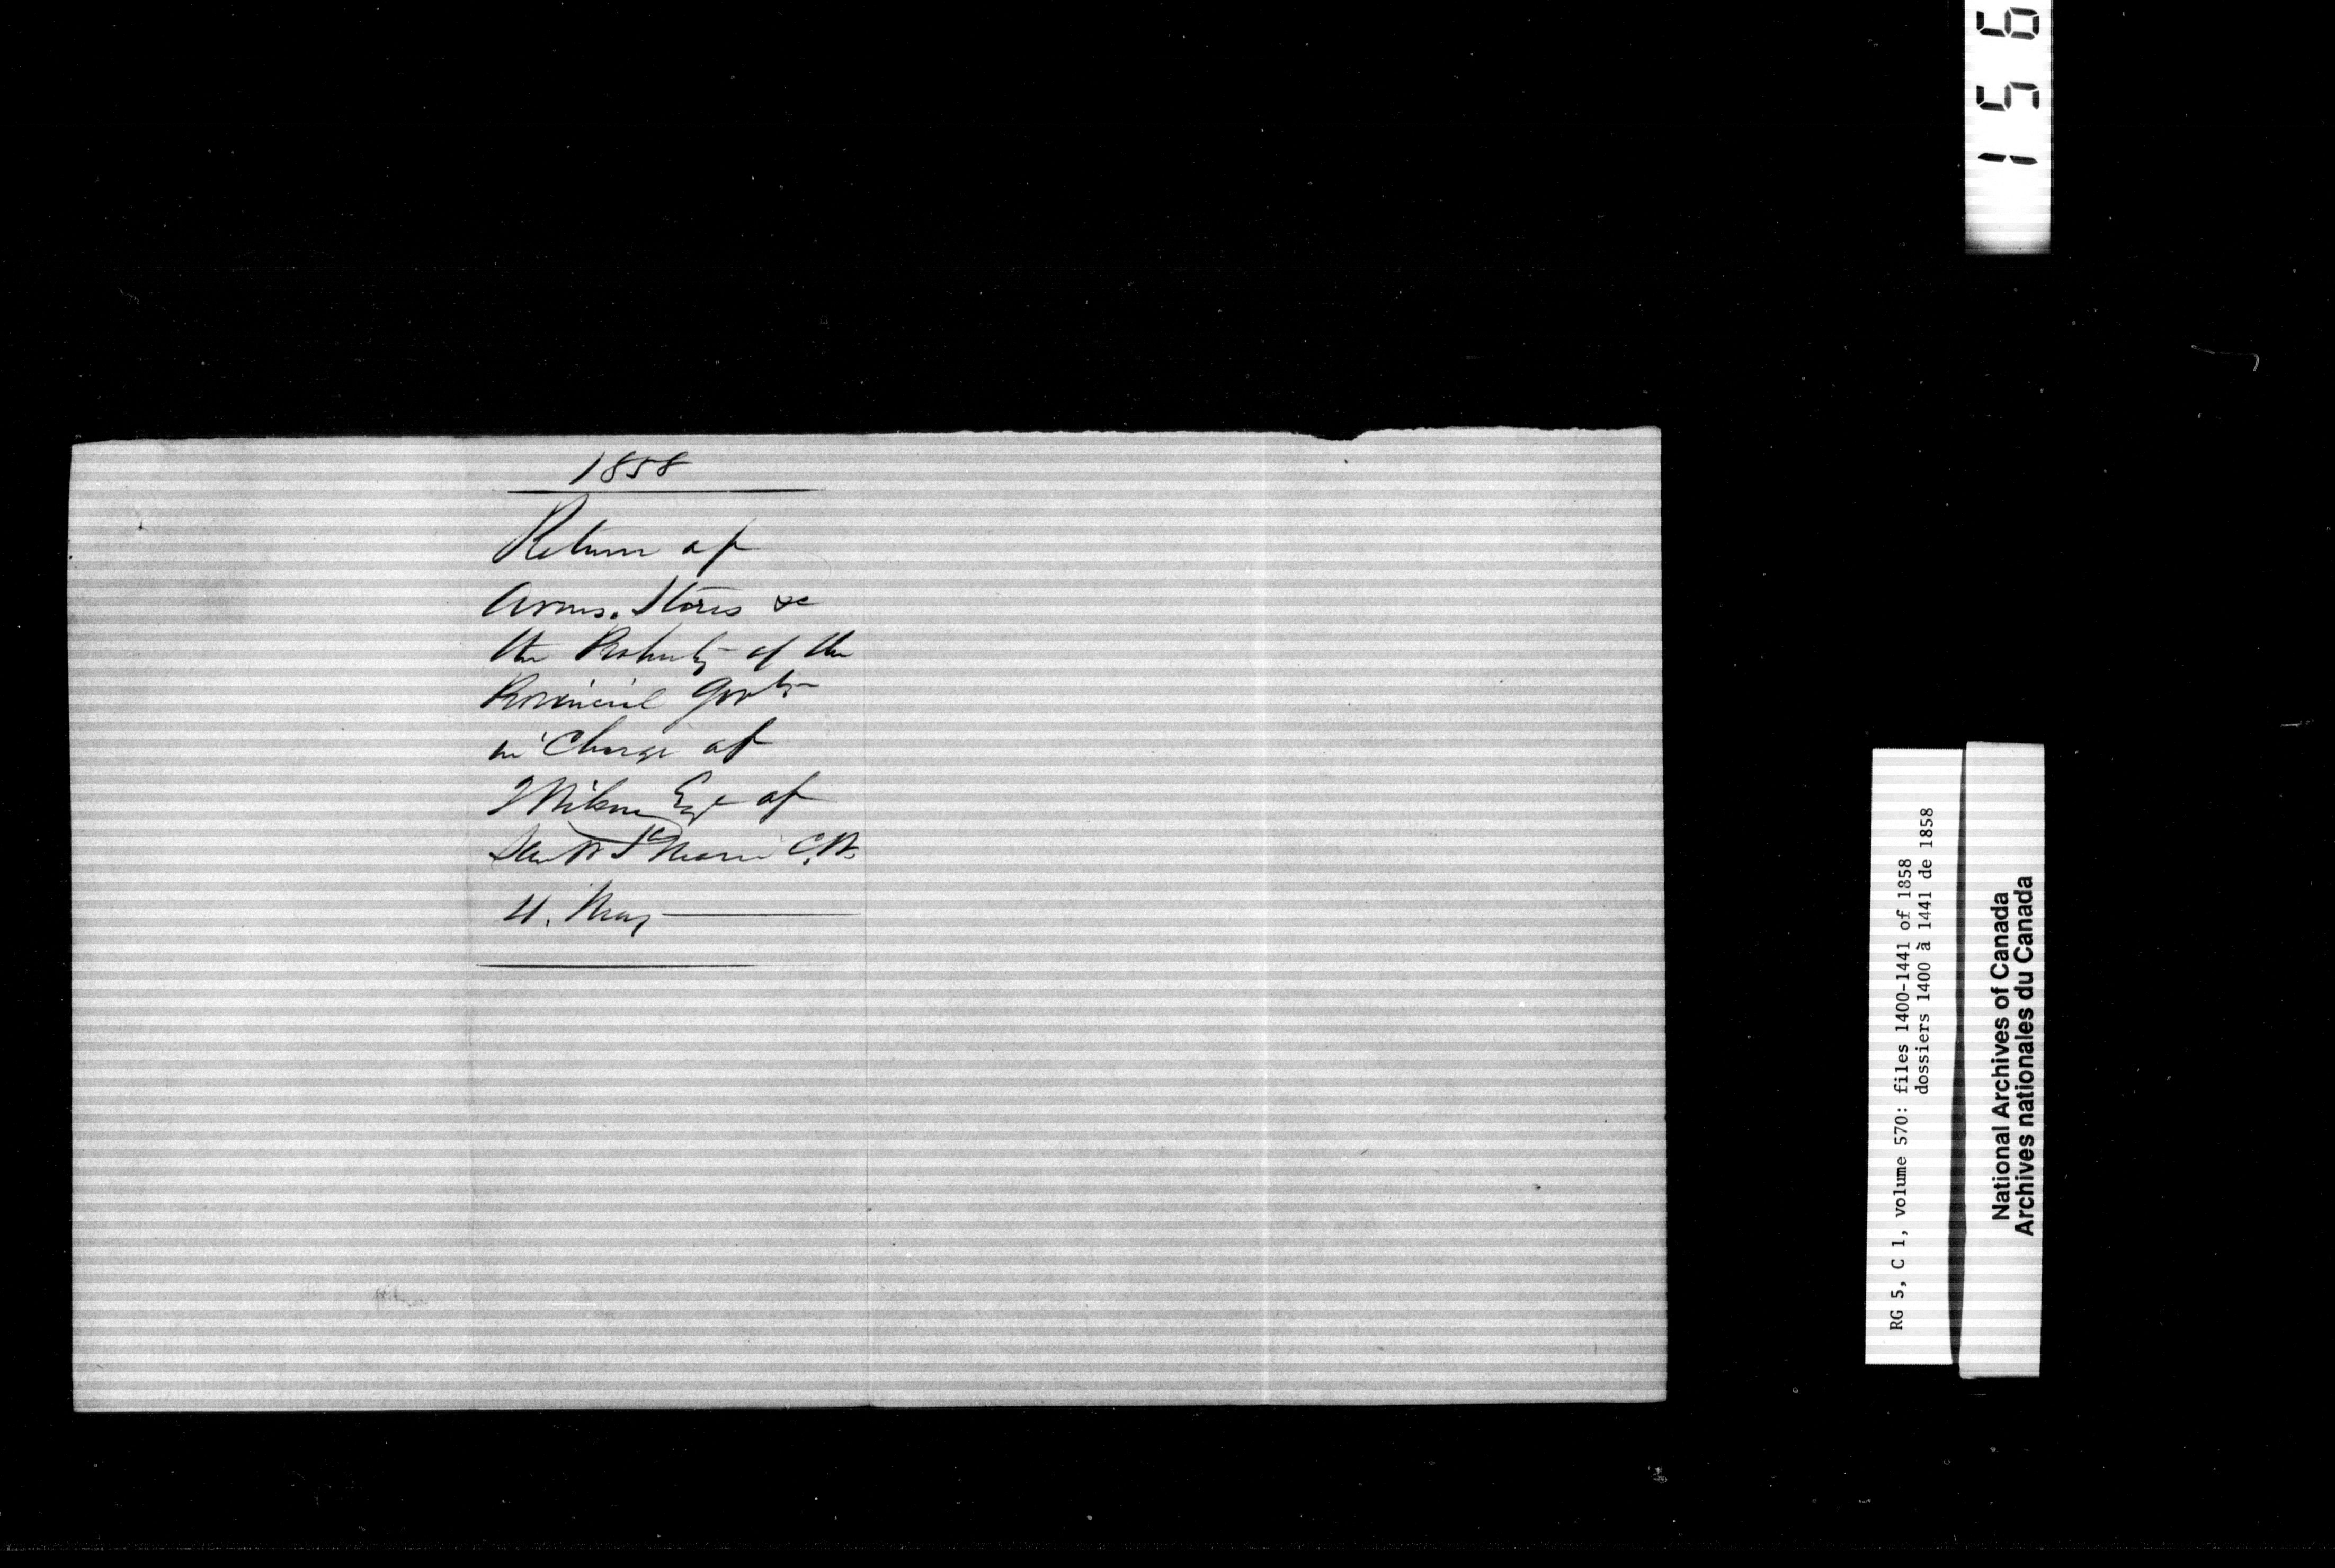 1858
Return of
Arms. Stores &c
the Property of the
Provincial Govt
in Charge of
J Wilson Esqr of
Sault Ste Marie C.W.
4. May
156
RG 5, C 1, volume 570: files 1400-1441 of 1858
dossiers 1400 à 1441 de 1858
National Archives of Canada
Archives nationales du Canada